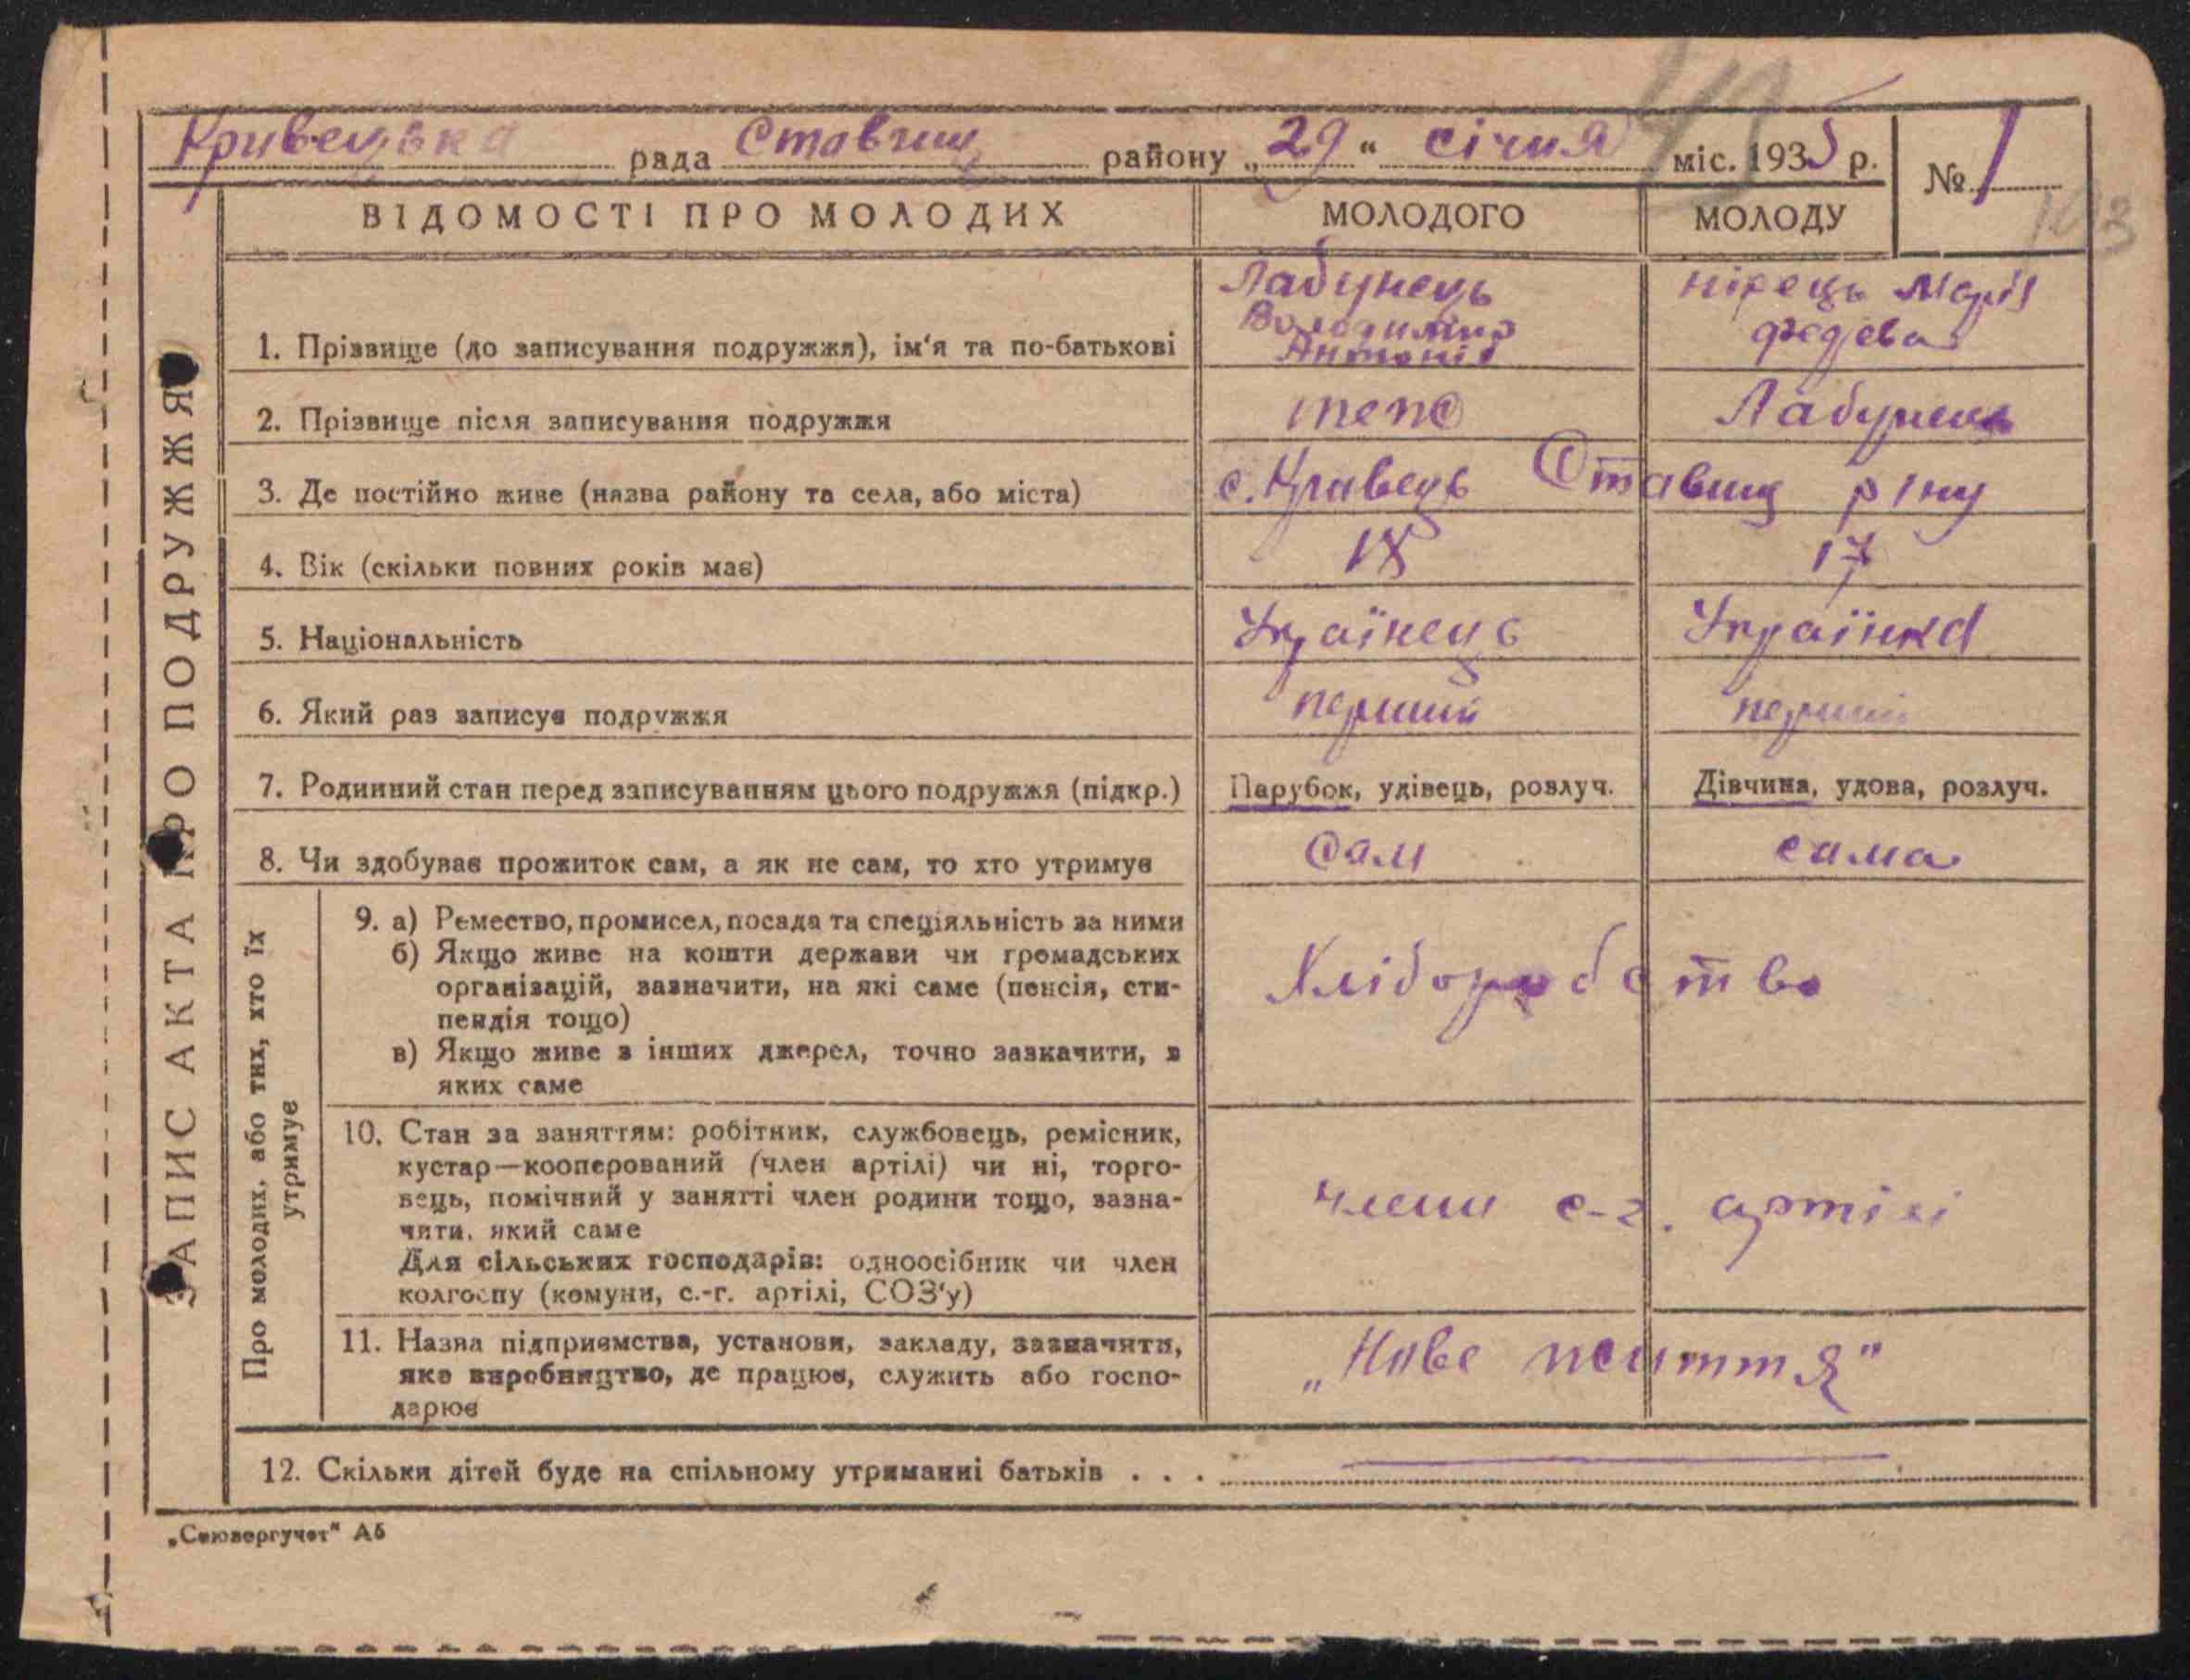 Кривецька рада Ставищ району „29“ січня міс. 1935 р. № 1
ЗАПИС АКТА ПРО ПОДРУЖЖЯ
ВІДОМОСТІ ПРО МОЛОДИХ МОЛОДОГО МОЛОДУ
Лабунець
Володимир
Антонів
Марія
1. Прізвище (до записування подружжя), ім‘я та по-батькові
2. Прізвище після записування подружжя теж Лабунець
3. Де постійно живе (назва району та села, або міста) с. Кривець Ставищ р-ну
4. Вік (скільки повних років має) 18 17
5. Національність Українець Українка
6. Який раз записує подружжя перший перший
7. Родинний стан перед записуванням цього подружжя (підкр.) Парубок, удівець, розлуч. Дівчина, удова, розлуч.
8. Чи здобував прожиток сам, а як не сам, то хто утримує сам сама
Про молодих, або тих, хто їх
утримує
9. а) Ремество, промисел, посада та спеціяльність за ними
б) Якщо живе на кошти держави чи громадських
організацій, зазначити, на які саме (пенсія, сти-
пендія тощо)
в) Якщо живе з інших джерел, точно зазначити, з
яких саме
Хліборобство
10. Стан за заняттям: робітник, службовець, ремісник,
кустар—кооперований (член артілі) чи ні, торго-
вець, помічний у занятті член родини тощо, зазна-
чити, який саме
Для сільських господарів: одноосібник чи член
колгоспу (комуни, с.-г. артілі, СОЗ‘у)
члени с-г. артілі
11. Назва підприємства, установи, закладу, зазначити,
яке виробництво, де працює, служить або госпо-
дарює
„Нове життя"
12. Скільки дітей буде на спільному утриманні батьків . . .
„Союзоргучет" А5